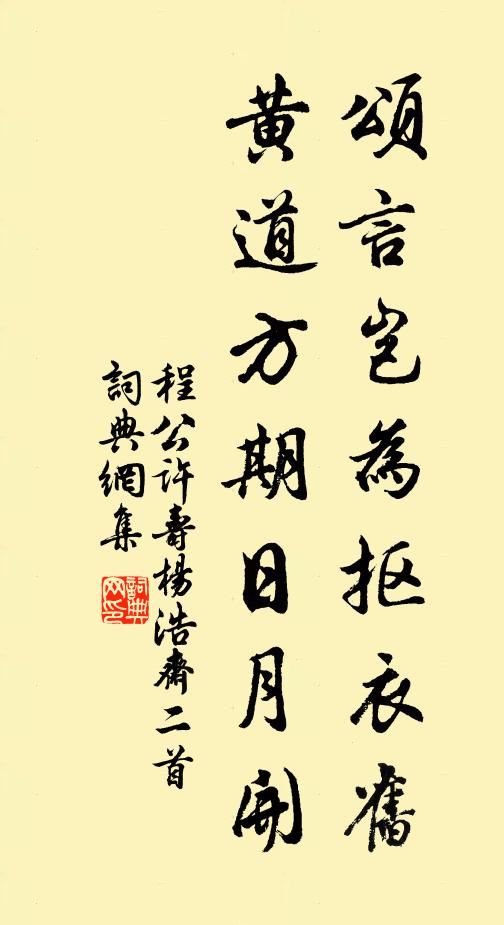 頌言岂為抠衣舊
黃道方期日月開
程公許壽楊浩齋二首
詞典網集